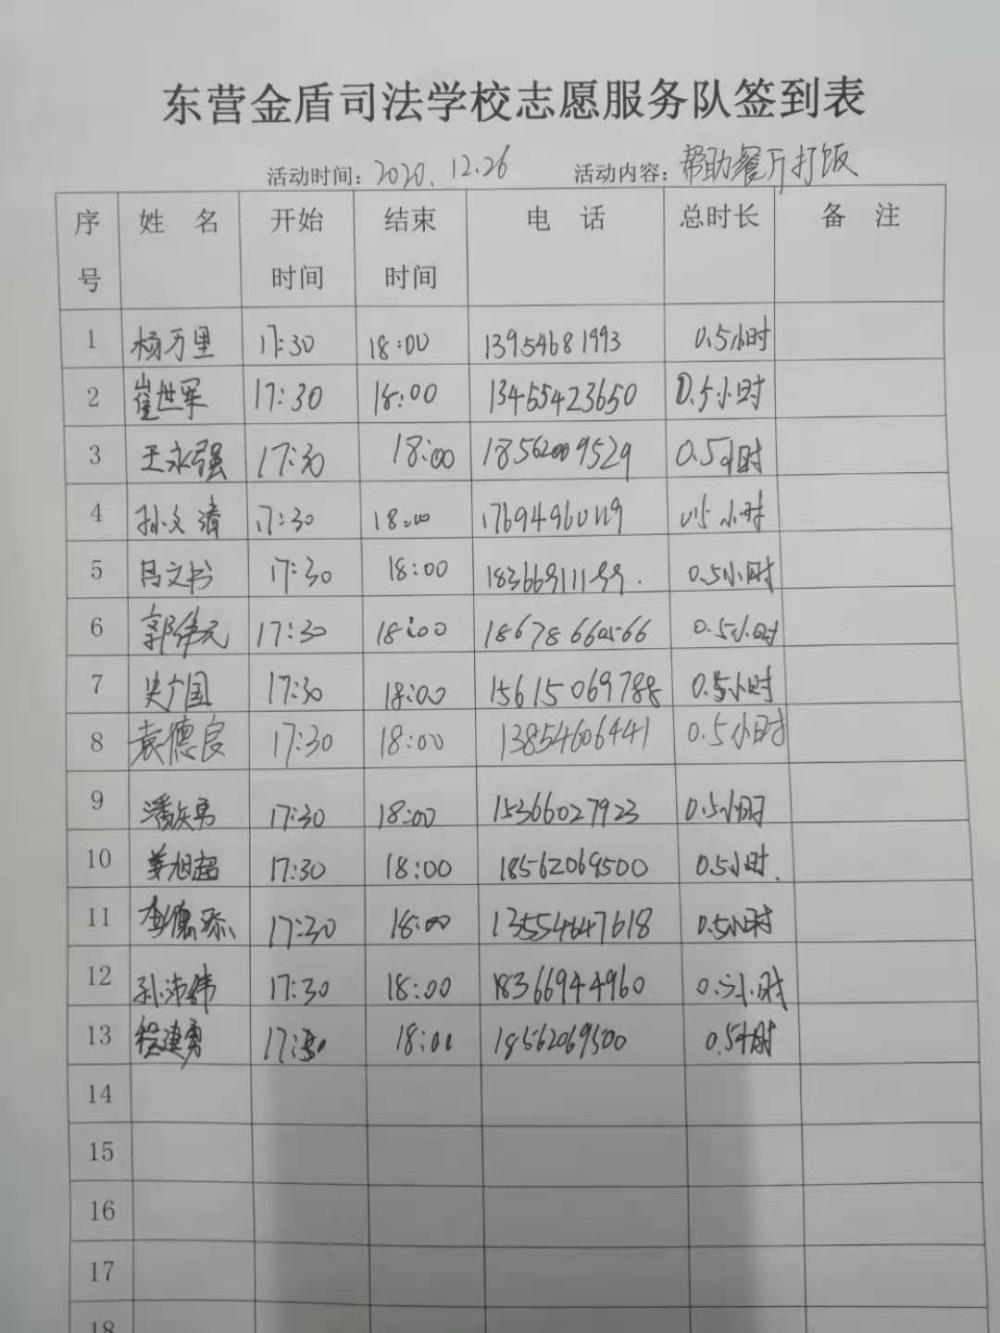 东营金盾司法学校志愿服务队签到表
活动时间：2020.12.26 活动内容：帮助餐厅打饭
序号 姓名 开始时间 结束时间 电话 总时长 备注
1 杨万里 17:30 18:00 13954681993 0.5小时
2 崔世军 17:30 18:00 13465423650 0.5小时
3 王永强 17:30 18:00 18562009529 0.5小时
4 孙文清 17:30 18:00 小时
5 吕文书 17:30 18:00 0.5小时
6 郭伟元 17:30 18:00 18678660566 0.5小时
7 史广国 17:30 18:00 15615069788 0.5小时
8 袁德良 17:30 18:00 13854606441 0.5小时
9 17:30 18:00 15366027923 0.5小时
10 姜旭超 17:30 18:00 18562069500 0.5小时.
11 17:30 18:00 13554647618 0.5小时
12 孙沛伟 17:30 18:00 18366944960 小时
13 程建勇 18:00 18562069500 0.5小时
14
15
16
17
18